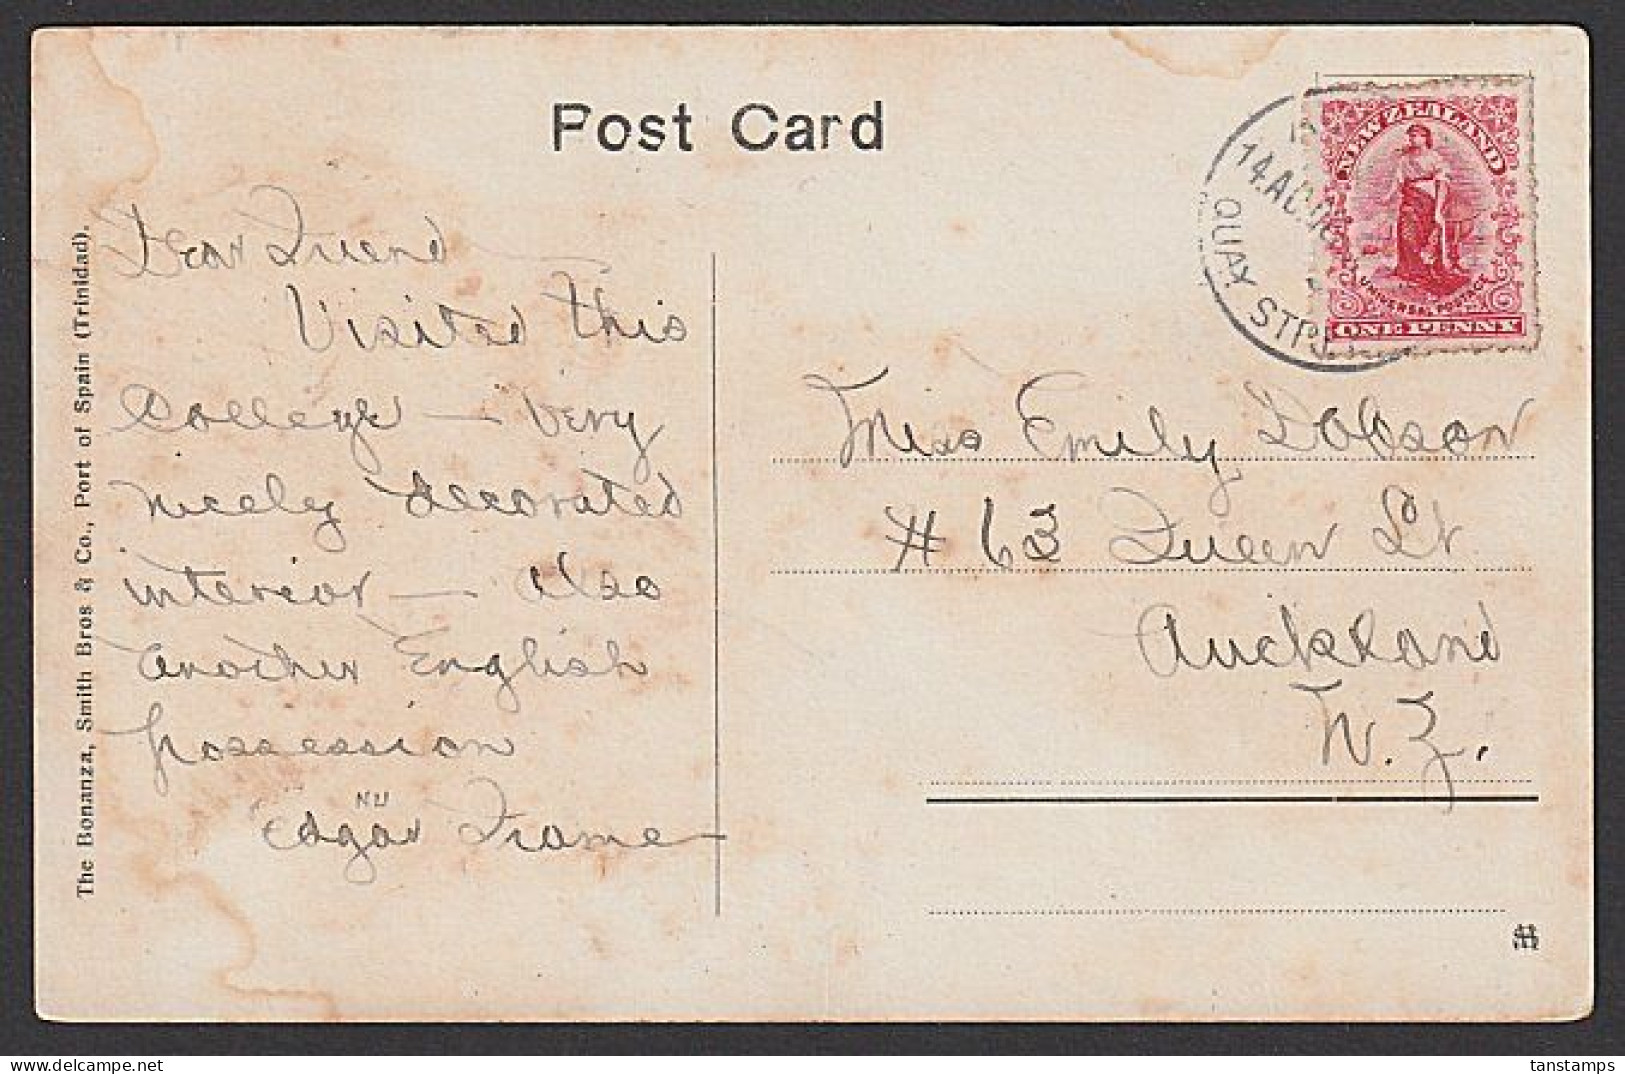 Post Card
Dear Friend
Visited this
College — very
nicely decorated
interior — also
another English
possession
NU
Edgar Frame
The Bonanza, Smith Bros & Co., Port of Spain (Trinidad).
14.AU
QUAY STR
NEW ZEALAND
UNIVERSAL POSTAGE
ONE PENNY
Miss Emily Dobson
# 63 Queen St.
Auckland
N.Z.
http://www.delcampe.net
tanstamps